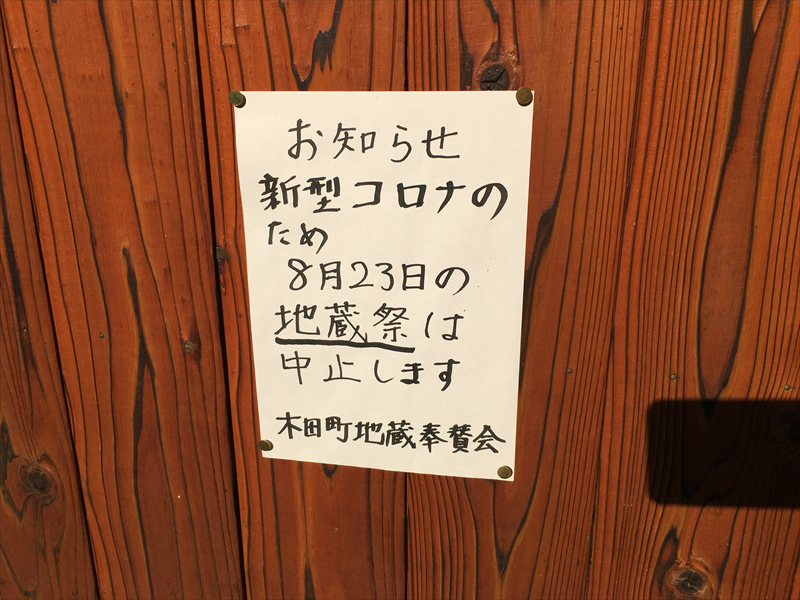 お知らせ
新型コロナの
ため
8月23日の
地蔵祭は
中止します
木田町地蔵奉賛会